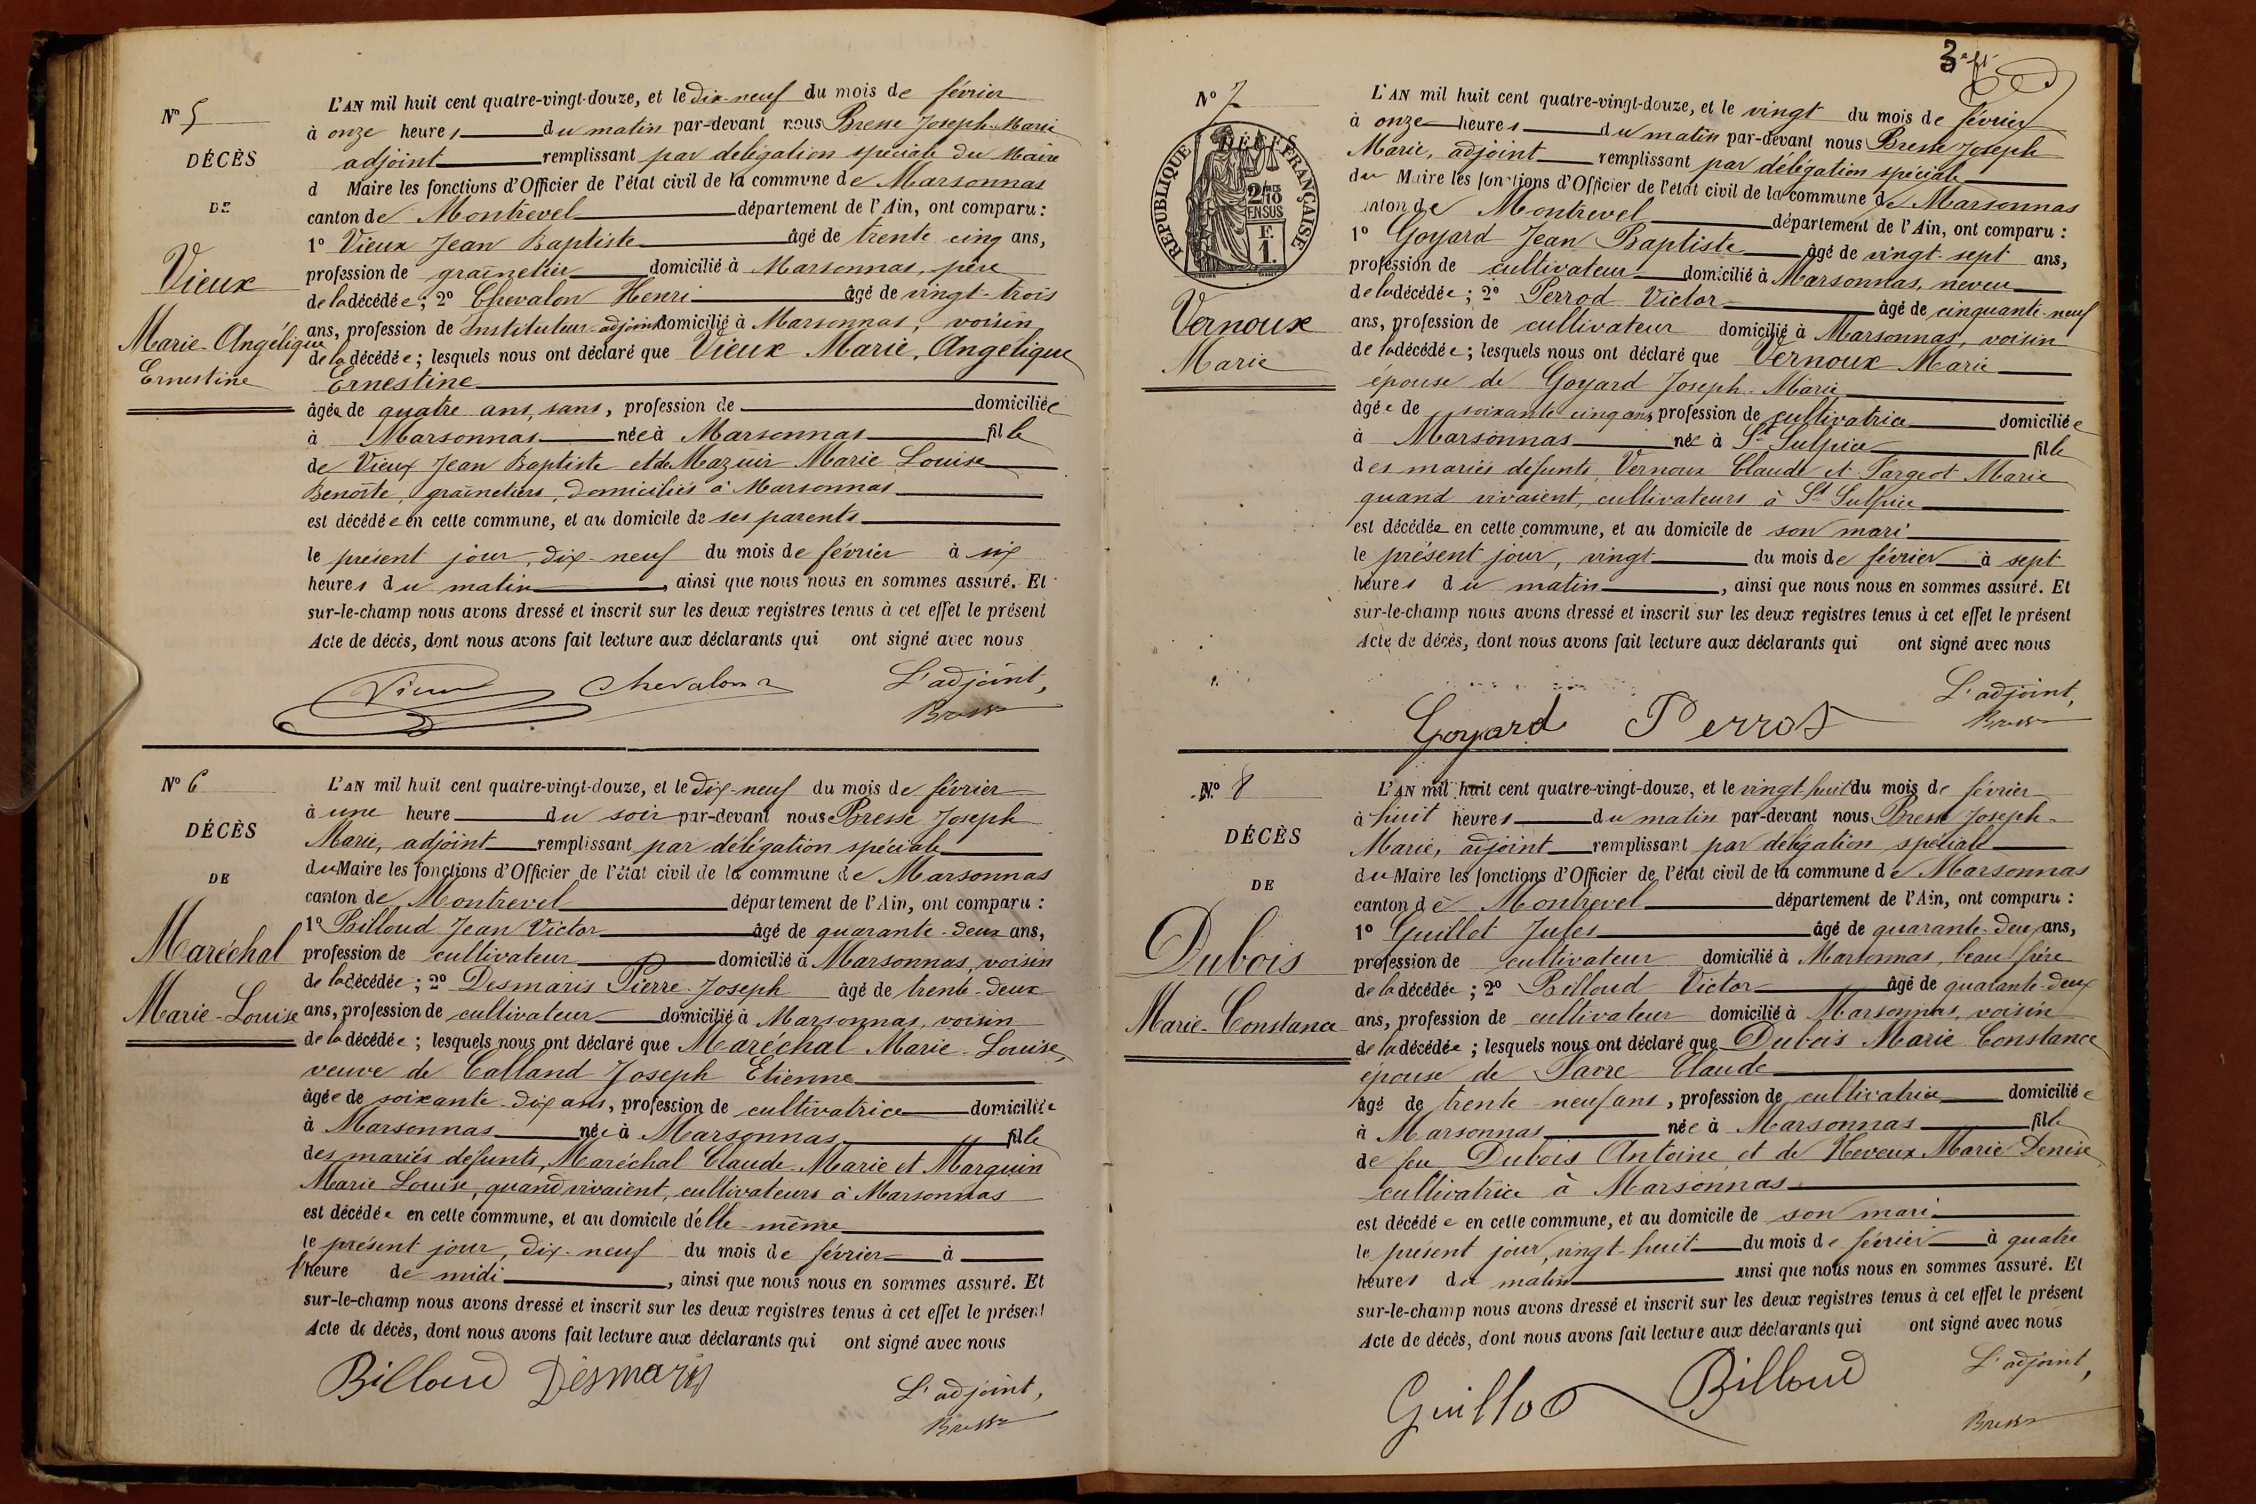 N° 5
DÉCÈS
DE
Vieux
Marie-Angélique
Ernestine
L'AN mil huit cent quatre-vingt-douze, et le dix-neuf du mois de février
à onze heures du matin par-devant nous Bresse Joseph-Marie
adjoint remplissant par délégation spéciale du Maire
d Maire les fonctions d'Officier de l'état civil de la commune de Marsonnas
canton de Montrevel département de l'Ain, ont comparu :
1° Vieux Jean Baptiste âgé de trente cinq ans,
profession de grainetier domicilié à Marsonnas, père
de la décédée ; 2° Chevalon Henri âgé de vingt-trois
ans, profession de Instituteur-adjoint domicilié à Marsonnas, voisin
de la décédée ; lesquels nous ont déclaré que Vieux Marie, Angélique
Ernestine
âgée de quatre ans, sans, profession de domiciliée
à Marsonnas née à Marsonnas fille
de Vieux Jean Baptiste et de Mazuir Marie Louise
Benoîte, grainetiers, domiciliés à Marsonnas
est décédée en cette commune, et au domicile de ses parents
le présent jour, dix-neuf du mois de février à six
heures du matin, ainsi que nous nous en sommes assuré. Et
sur-le-champ nous avons dressé et inscrit sur les deux registres tenus à cet effet le présent
Acte de décès, dont nous avons fait lecture aux déclarants qui ont signé avec nous
Vieux Chevalon L'adjoint,
Bresse
N° 6
DÉCÈS
DE
Maréchal
Marie-Louise
L'AN mil huit cent quatre-vingt-douze, et le dix-neuf du mois de février
à une heure du soir par-devant nous Bresse Joseph
Marie, adjoint remplissant par délégation spéciale
du Maire les fonctions d'Officier de l'état civil de la commune de Marsonnas
canton de Montrevel département de l'Ain, ont comparu :
1° Billoud Jean Victor âgé de quarante-deux ans,
profession de cultivateur domicilié à Marsonnas, voisin
de la décédée ; 2° Desmaris Pierre-Joseph âgé de trente-deux
ans, profession de cultivateur domicilié à Marsonnas, voisin
de la décédée ; lesquels nous ont déclaré que Maréchal Marie-Louise,
veuve de Calland Joseph Etienne
âgée de soixante-dix ans, profession de cultivatrice domiciliée
à Marsonnas née à Marsonnas fille
des mariés défunts, Maréchal Claude-Marie et Marguin
Marie Louise, quand vivaient, cultivateurs à Marsonnas
est décédée en cette commune, et au domicile d'elle-même
le présent jour, dix-neuf du mois de février à
l'heure de midi, ainsi que nous nous en sommes assuré. Et
sur-le-champ nous avons dressé et inscrit sur les deux registres tenus à cet effet le présent
Acte de décès, dont nous avons fait lecture aux déclarants qui ont signé avec nous
Billoud Desmaris L'adjoint,
Bresse
3e ft
N° 7
RÉPUBLIQUE FRANÇAISE
2/10 EN SUS
F. 1.
Vernoux
Marie
L'AN mil huit cent quatre-vingt-douze, et le vingt du mois de février
à onze heures du matin par-devant nous Bresse Joseph
Marie, adjoint remplissant par délégation spéciale
du Maire les fonctions d'Officier de l'état civil de la commune de Marsonnas
canton de Montrevel département de l'Ain, ont comparu :
1° Goyard Jean Baptiste âgé de vingt-sept ans,
profession de cultivateur domicilié à Marsonnas, neveu
de la décédée ; 2° Perrod Victor âgé de cinquante-neuf
ans, profession de cultivateur domicilié à Marsonnas, voisin
de la décédée ; lesquels nous ont déclaré que Vernoux Marie
épouse de Goyard Joseph-Marie
âgée de soixante cinq ans, profession de cultivatrice domiciliée
à Marsonnas née à St Sulpice fille
des mariés défunts, Vernoux Claude et Fargeot Marie
quand vivaient, cultivateurs à St Sulpice
est décédée en cette commune, et au domicile de son mari
le présent jour, vingt du mois de février à sept
heures du matin, ainsi que nous nous en sommes assuré. Et
sur-le-champ nous avons dressé et inscrit sur les deux registres tenus à cet effet le présent
Acte de décès, dont nous avons fait lecture aux déclarants qui ont signé avec nous
L'adjoint,
Goyard Perrod Bresse
N° 8
DÉCÈS
DE
Dubois
Marie-Constance
L'AN mil huit cent quatre-vingt-douze, et le vingt huit du mois de février
à huit heures du matin par-devant nous Bresse Joseph-
Marie, adjoint remplissant par délégation spéciale
du Maire les fonctions d'Officier de l'état civil de la commune de Marsonnas
canton de Montrevel département de l'Ain, ont comparu :
1° Guillot Jules âgé de quarante-deux ans,
profession de cultivateur domicilié à Marsonnas, beau frère
de la décédée ; 2° Billoud Victor âgé de quarante-deux
ans, profession de cultivateur domicilié à Marsonnas, voisin
de la décédée ; lesquels nous ont déclaré que Dubois Marie Constance
épouse de Favre Claude
âgé de trente-neuf ans, profession de cultivatrice domiciliée
à Marsonnas née à Marsonnas fille
de feu Dubois Antoine et de Neveux Marie Denise
cultivatrice à Marsonnas
est décédée en cette commune, et au domicile de son mari
le présent jour, vingt-huit du mois de février à quatre
heures du matin ainsi que nous nous en sommes assuré. Et
sur-le-champ nous avons dressé et inscrit sur les deux registres tenus à cet effet le présent
Acte de décès, dont nous avons fait lecture aux déclarants qui ont signé avec nous
Guillot Billoud L'adjoint,
Bresse